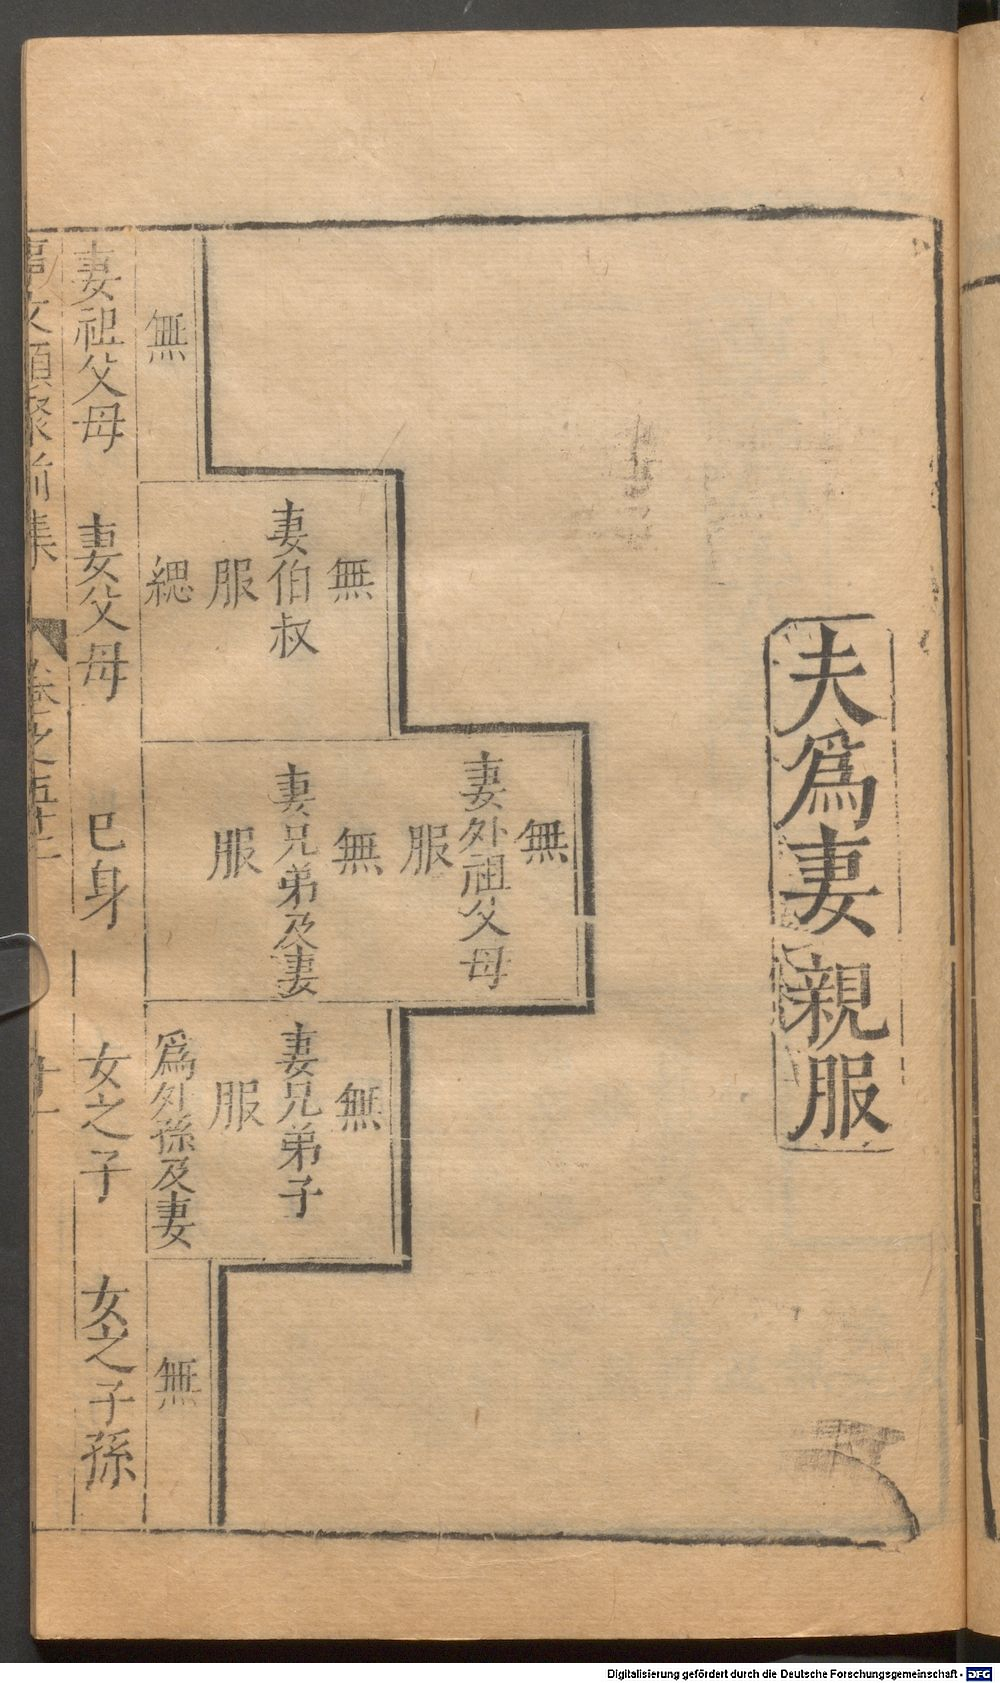 夫爲妻親服
無
妻外祖父母
服
無
妻伯叔
服
緦
無
妻兄弟及妻
服
無
妻兄弟子
服
爲外孫及妻
無
無
妻祖父母
妻父母
巳身
女之子
女之子孫
事文類聚前集
卷之五十二
十一
Digitalisierung gefördert durch die Deutsche Forschungsgemeinschaft - DFG